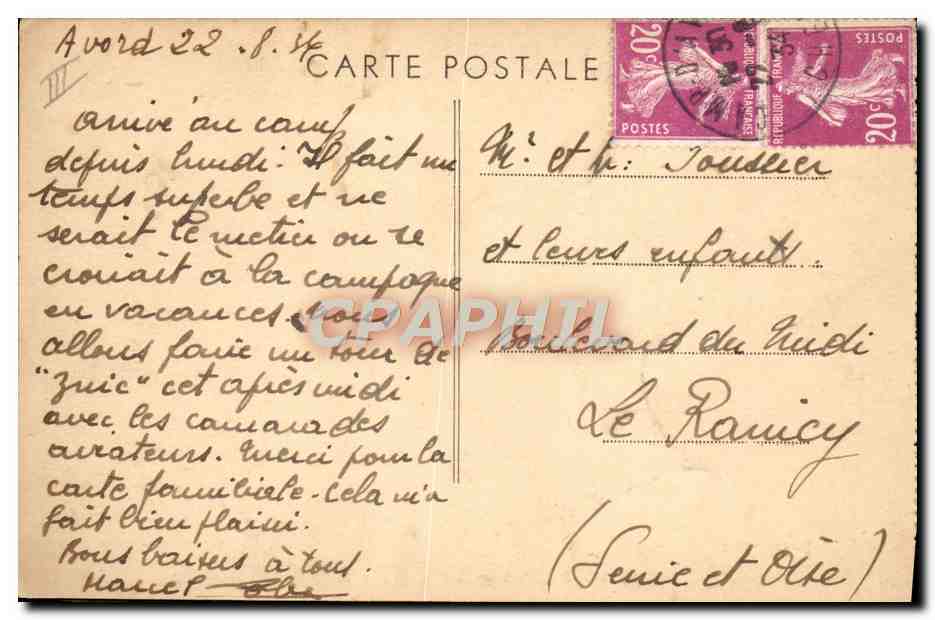 Avord 22.8.34
III
CARTE POSTALE
arrivé au camp
depuis lundi. Il fait un
temps superbe et ne
serait le metier on se
croirait à la campagne
en vacances. Nous
allons faire un tour de
"Zinc" cet après midi
avec les camarades
aviateurs. Merci pour la
carte familiale. Cela m'a
fait bien plaisir.
Bons baisers à tous.
20c
POSTES
REPUBLIQUE FRANÇAISE
POSTES
REPUBLIQUE FRANÇAISE
20c
Mr et Toussier
et leurs enfants.
Boulevard du Midi
Le Raincy
(Seine et Oise)
CPAPHIL